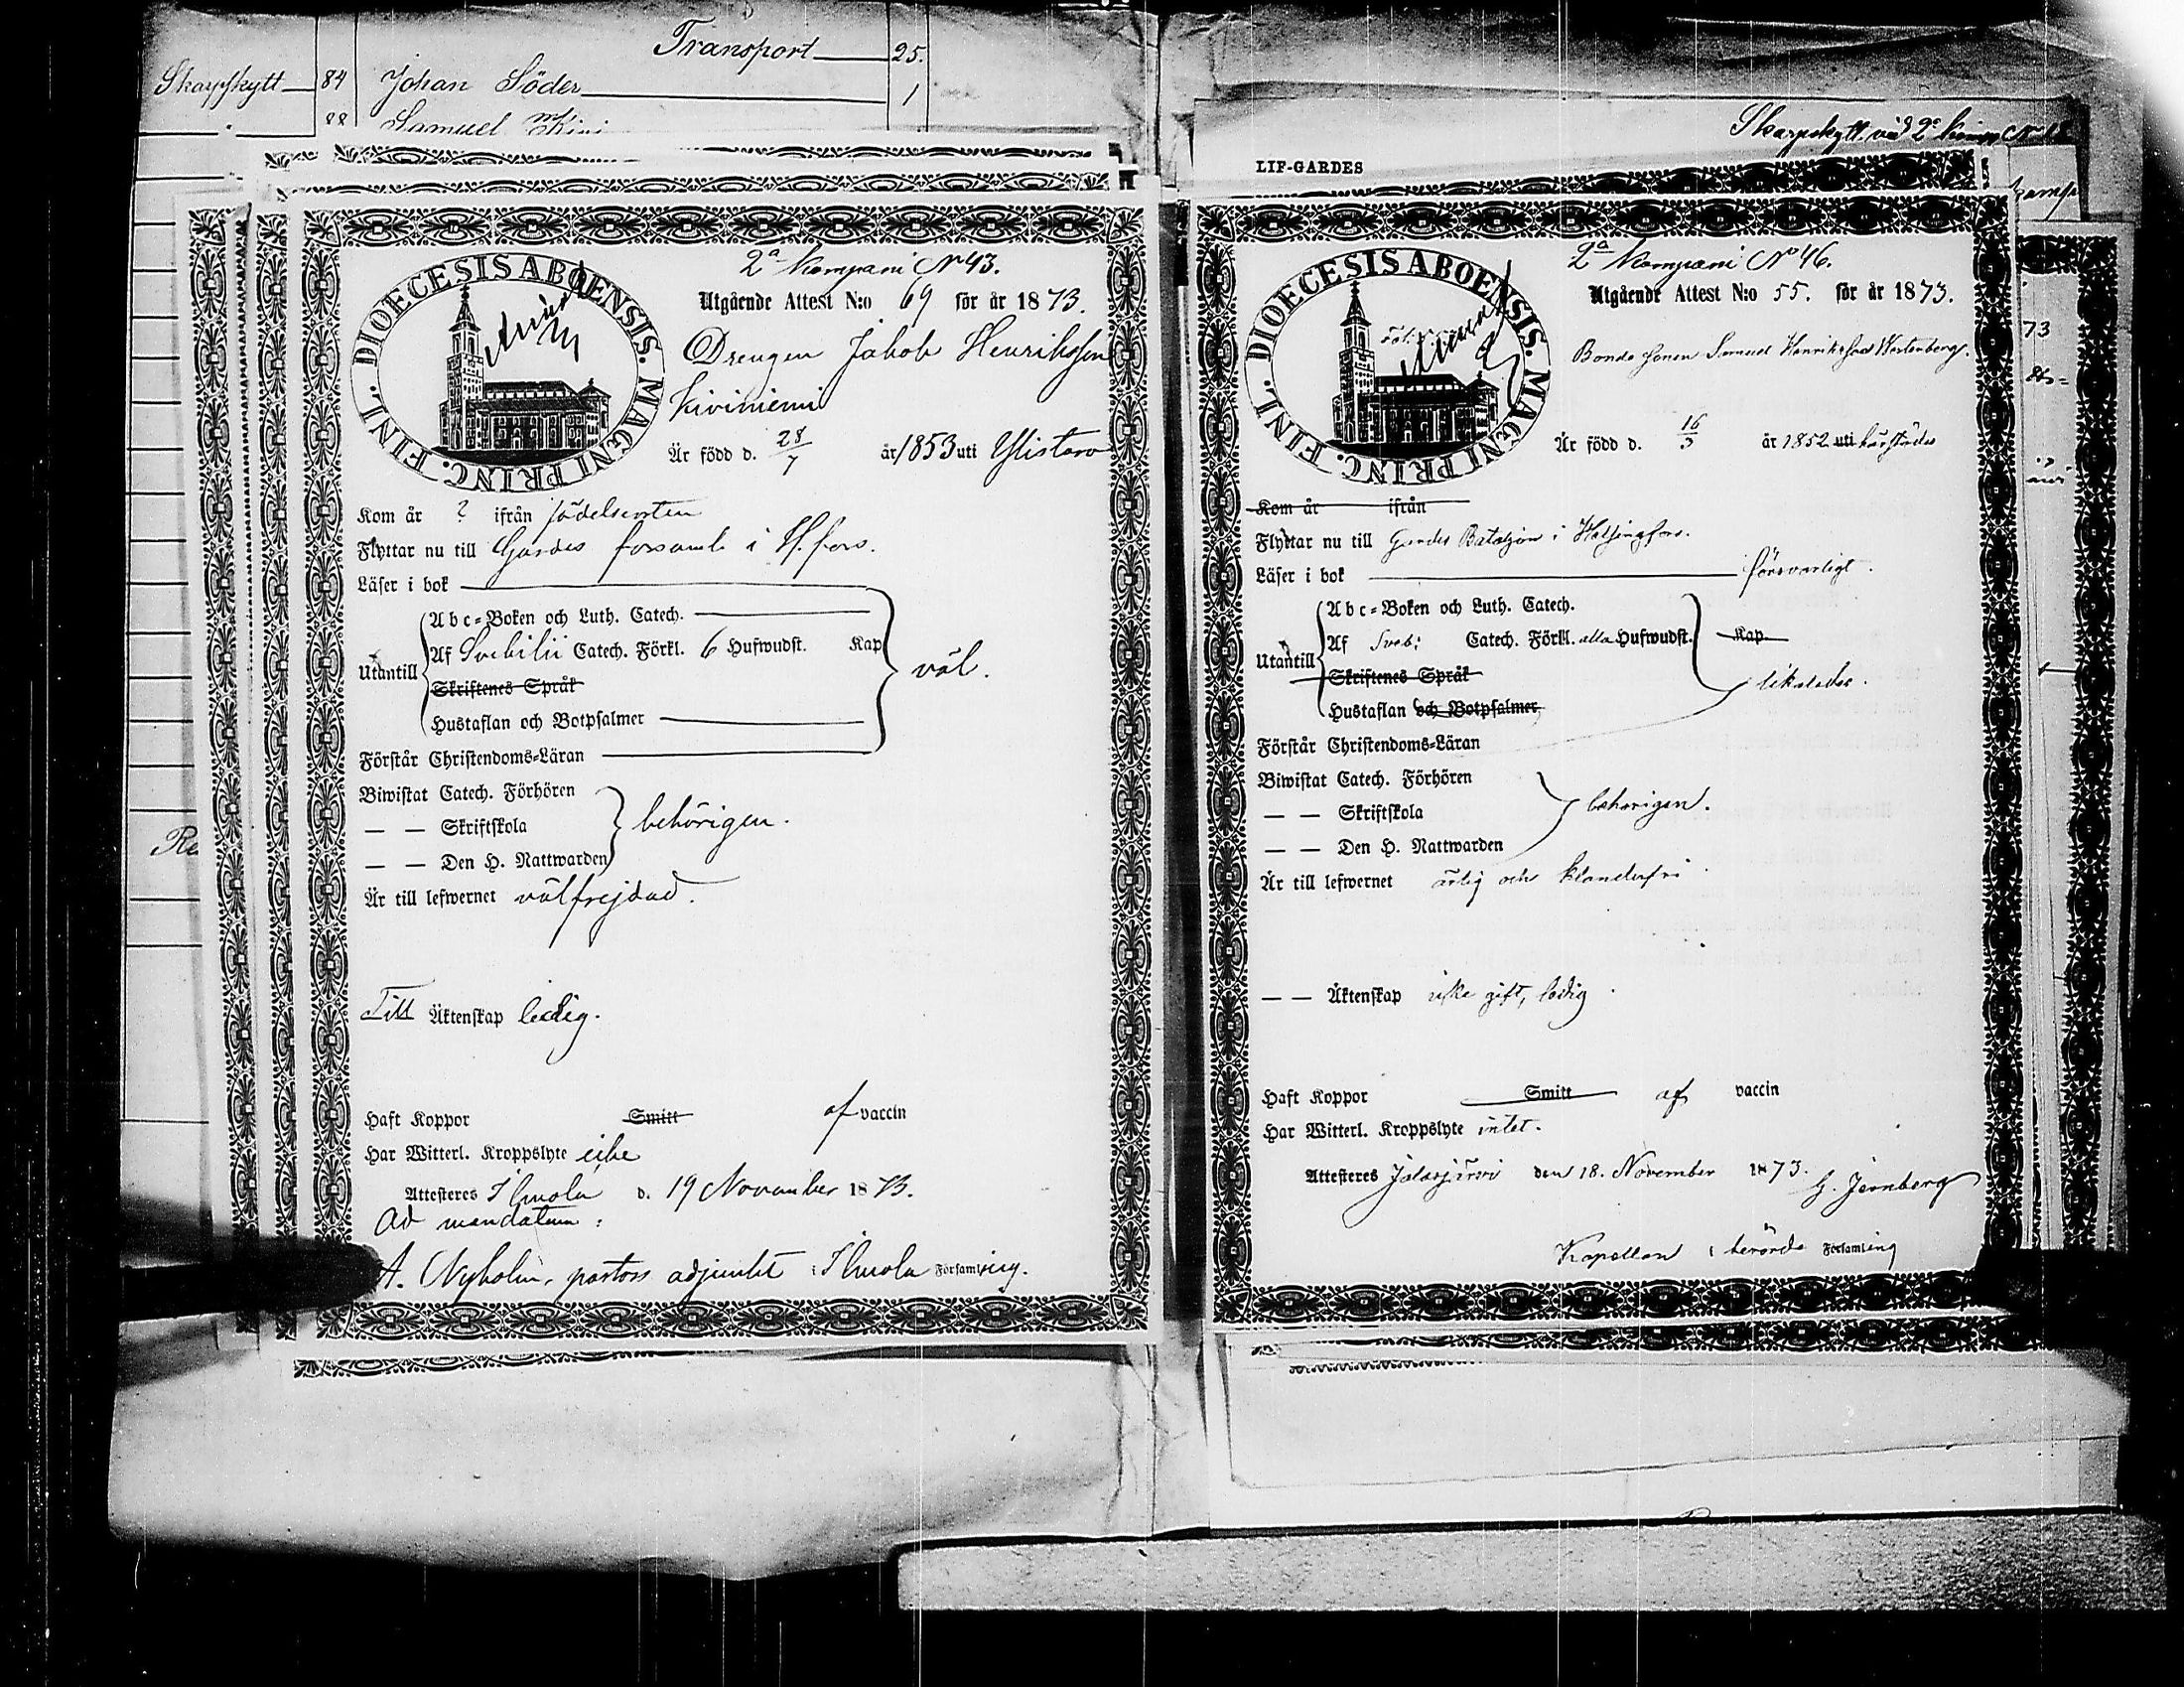 Transport 25.
Skarpskytt 84 Johan Söder 1
88 Samuel
2a Kompani No 43.
DIOECESIS ABOENSIS. MAGNI PRINC. FINL.
Utgående Attest N:o 69 för år 1873.
Drengen Jakob Henriksson
Kiviniemi
Är född d. 28/7 år 1853 uti Ylistaro
Kom år ? ifrån födelseorten
Flyttar nu till Gardes forsaml. i H.fors.
Läser i bok
Abc-Boken och Luth. Catech.
Utantill Af Svebilii Catech. Förkl. 6 Hufwudst. Kap väl.
Skriftenes Språk
Hustaflan och Botpsalmer
Förstår Christendoms-Läran
Biwistat Catech. Förhören
— — Skriftskola behörigen.
— — Den H. Nattwarden
Är till lefwernet välfrejdad.
Till Äktenskap ledig.
Haft Koppor Smitt af vaccin
Har Witterl. Kroppslyte icke
Attesteres Ilmola d. 19 November 1873.
Ad mandatum:
A. Nyholm, pastors adjunkt i Ilmola Församling.
Skarpskytt vid 2a
LIF-GARDES
2a Kompani No 46.
DIOECESIS ABOENSIS. MAGNI PRINC. FINL.
Utgående Attest N:o 55. för år 1873.
Bonde sonen Samuel Henriksson Westenberg.
Är född d. 16/3 år 1852 uti härstädes
Kom år ifrån
Flyttar nu till Gardes Bataljon i Helsingfors.
Läser i bok försvarligt.
Abc-Boken och Luth. Catech.
Utantill Af Sveb: Catech. Förkl. alla Hufwudst. Kap.
Skriftenes Språk likaledes.
Hustaflan och Botpsalmer
Förstår Christendoms-Läran
Biwistat Catech. Förhören
— — Skriftskola behörigen.
— — Den H. Nattwarden
Är till lefwernet ärlig och klanderfri
— — Äktenskap icke gift, ledig
Haft Koppor Smitt af vaccin
Har Witterl. Kroppslyte intet.
Attesteres Jalasjärvi den 18. November 1873. G. Jernberg
Kapellan i berörde Församling
73